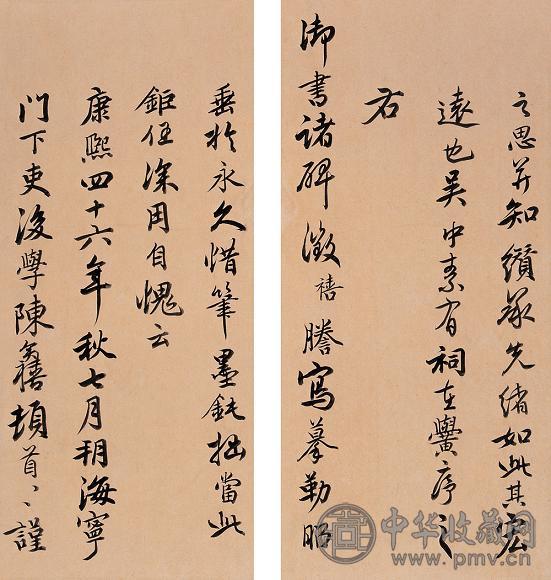 之思并知纘承先緒如此其宏
遠也吳中素有祠在黌序之
右
御書諸碑徵禧謄寫摹勒昭
垂於永久惜筆墨鈍拙當此
鉅任深用自愧云
康熙四十六年秋七月朔海寧
門下吏後學陳奕禧頓首〻謹
中华收藏网
www.pmv.cn